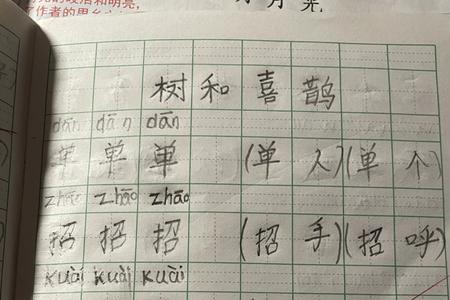 和明亮,
作者的
月
树和喜鹊
dān dān dān
单 单 单 (单人)(单个)
zhāo zhāo zhāo
招 招 招 (招手)(招呼)
kuài kuài kuài